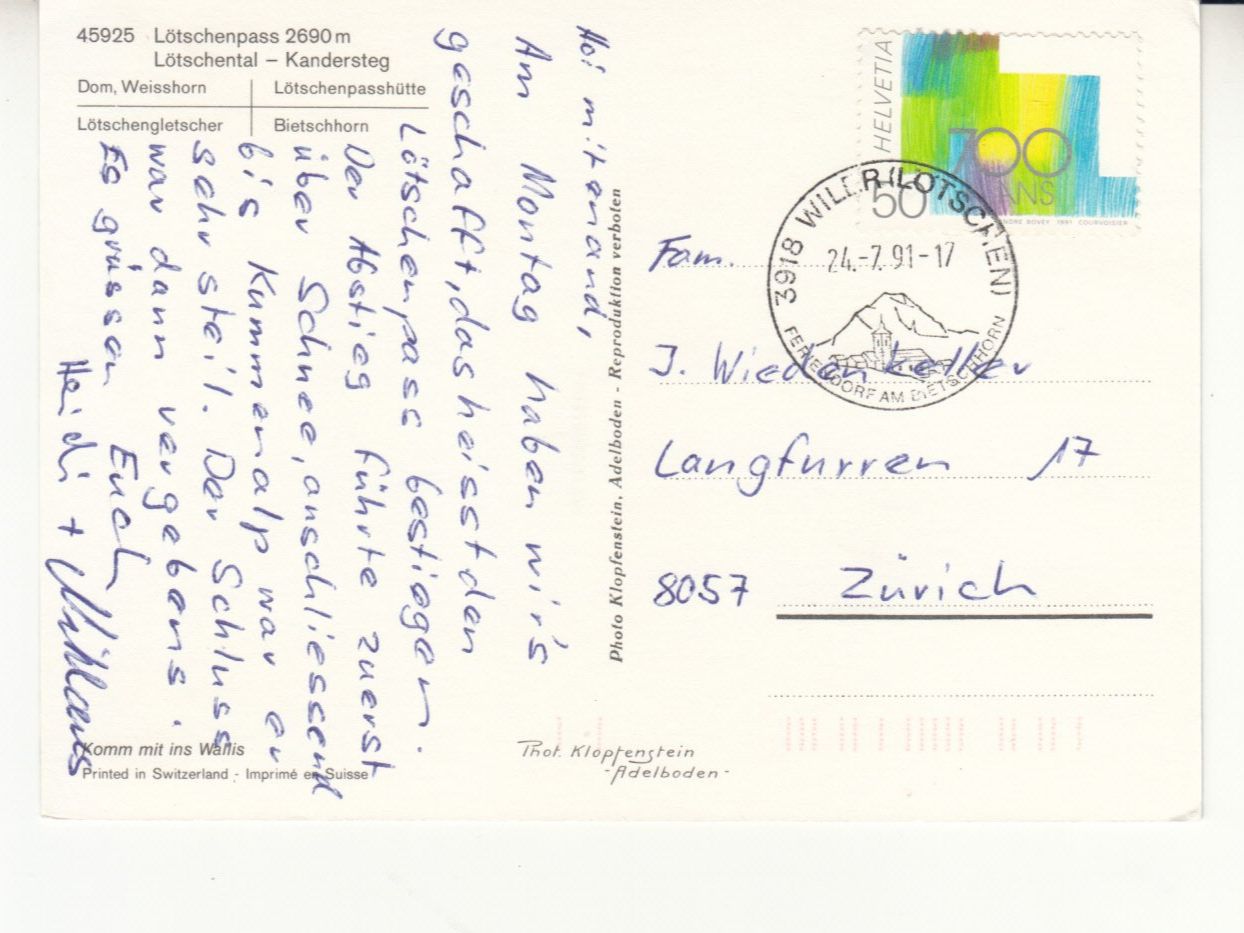 45925 Lötschenpass 2690 m
Lötschental – Kandersteg
Dom, Weisshorn
Lötschenpasshütte
Lötschengletscher
Bietschhorn
Hoi mitenand,
Am Montag haben wir's
geschafft, das heisst den
Lötschenpass bestiegen.
Der Abstieg führte zuerst
über Schnee, anschliessend
bis Kummenalp war er
sehr steil. Der Schluss
war dann vergebens.
Es grüssen Euch
Heidi + Niklaus
Komm mit ins Wallis
Printed in Switzerland - Imprimé en Suisse
Photo Klopfenstein, Adelboden - Reproduktion verboten
Phot. Klopfenstein
- Adelboden -
HELVETIA
700
ANS
50
ANDRÉ BOVEY 1991 COURVOISIER
3918 WILER (LÖTSCHEN)
24.-7.91-17
FERIENDORF AM BIETSCHHORN
Fam.
J. Wiedenkeller
Langfurren 17
8057 Zürich